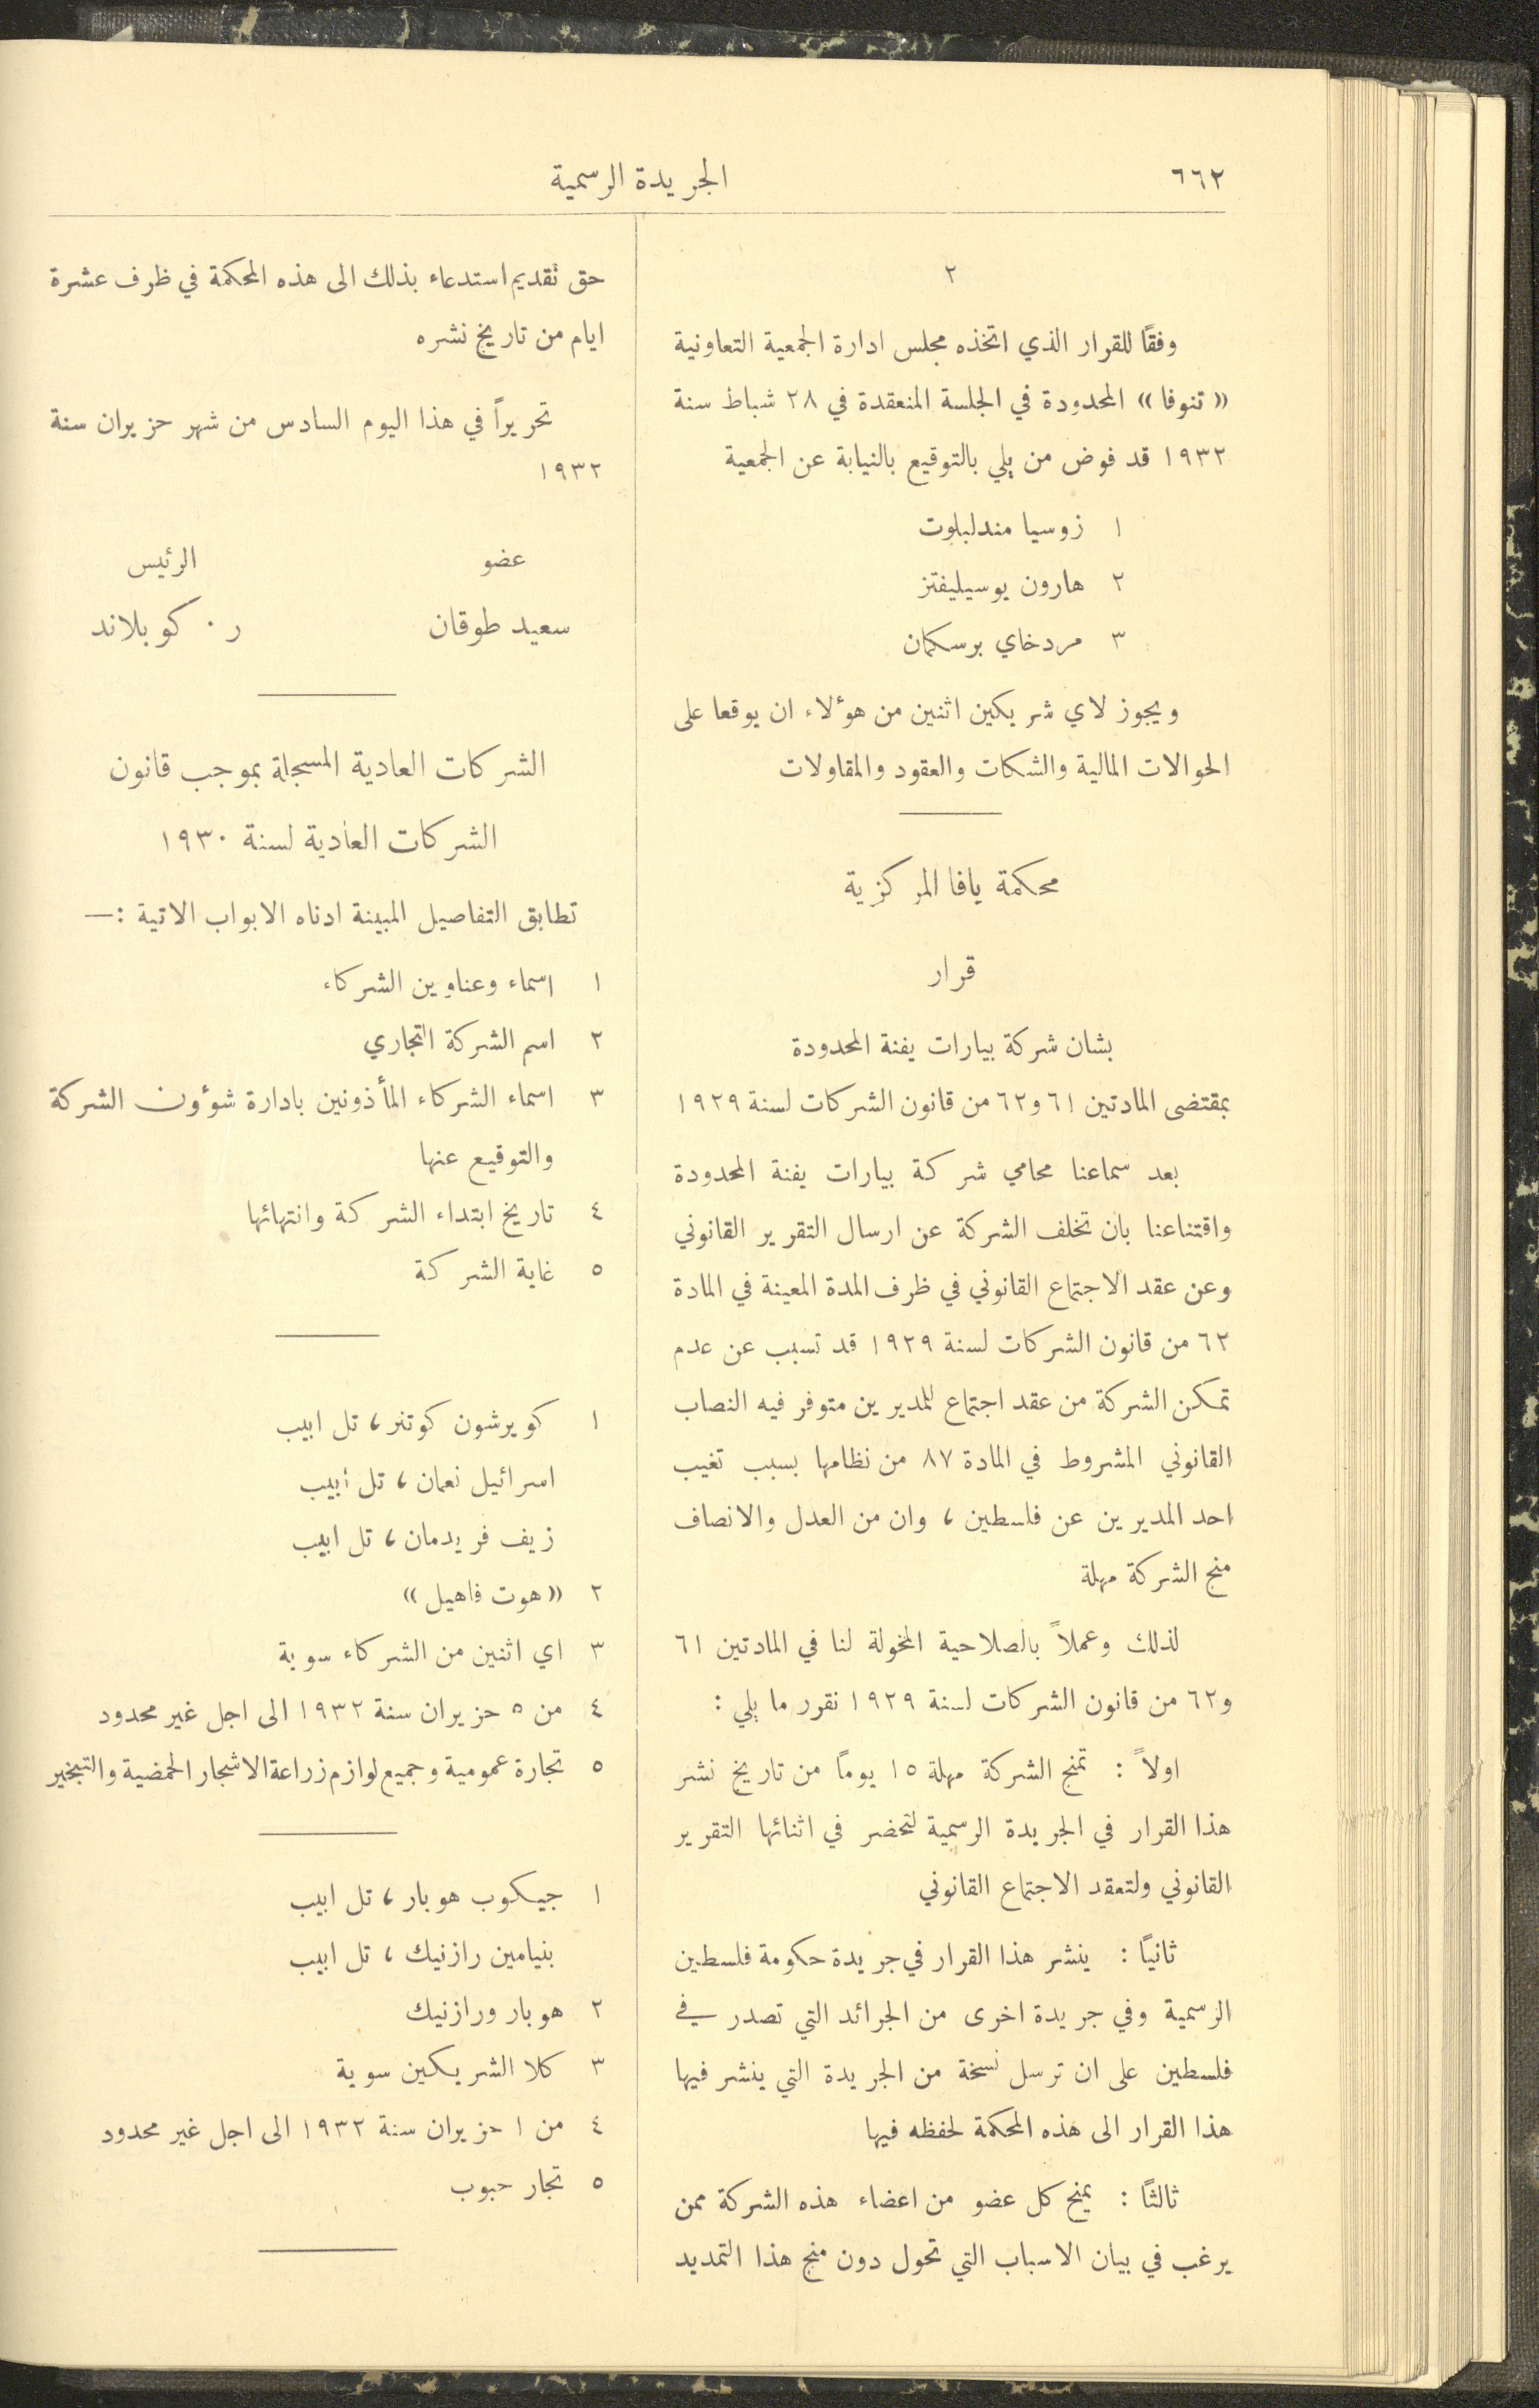 ٦٦٢
الجريدة الرسمية
٢
وفقاً للقرار الذي اتخذه مجلس ادارة الجمعية التعاونية
«تنوفا» المحدودة في الجلسة المنعقدة في ٢٨ شباط سنة
١٩٣٢ قد فوض من يلي بالتوقيع بالنيابة عن الجمعية
١ زوسيا مندلبلوت
٢ هارون يوسيليفتز
٣ مردخاي برسكمان
ويجوز لاي شريكين اثنين من هؤلاء ان يوقعا على
الحوالات المالية والشكات والعقود والمقاولات
محكمة يافا المركزية
قرار
بشان شركة بيارات يفنة المحدودة
بمقتضى المادتين ٦١ و٦٢ من قانون الشركات لسنة ١٩٢٩
بعد سماعنا محامي شركة بيارات يفنة المحدودة
واقتناعنا بان تخلف الشركة عن ارسال التقرير القانوني
وعن عقد الاجتماع القانوني في ظرف المدة المعينة في المادة
٦٢ من قانون الشركات لسنة ١٩٢٩ قد تسبب عن عدم
تمكن الشركة من عقد اجتماع للمديرين متوفر فيه النصاب
القانوني المشروط في المادة ٨٧ من نظامها بسبب تغيب
احد المديرين عن فلسطين، وان من العدل والانصاف
منح الشركة مهلة
لذلك وعملاً بالصلاحية المخولة لنا في المادتين ٦١
و٦٢ من قانون الشركات لسنة ١٩٢٩ نقرر ما يلي :
اولاً : تمنح الشركة مهلة ١٥ يوماً من تاريخ نشر
هذا القرار في الجريدة الرسمية لتحضر في اثنائها التقرير
القانوني ولتعقد الاجتماع القانوني
ثانياً : ينشر هذا القرار في جريدة حكومة فلسطين
الرسمية وفي جريدة اخرى من الجرائد التي تصدر في
فلسطين على ان ترسل نسخة من الجريدة التي ينشر فيها
هذا القرار الى هذه المحكمة لحفظه فيها
ثالثاً : يمنح كل عضو من اعضاء هذه الشركة ممن
يرغب في بيان الاسباب التي تحول دون منح هذا التمديد
حق تقديم استدعاء بذلك الى هذه المحكمة في ظرف عشرة
ايام من تاريخ نشره
تحريراً في هذا اليوم السادس من شهر حزيران سنة
١٩٣٢
عضو الرئيس
سعيد طوقان ر. كوبلاند
الشركات العادية المسجلة بموجب قانون
الشركات العادية لسنة ١٩٣٠
تطابق التفاصيل المبينة ادناه الابواب الاتية :—
١ اسماء وعناوين الشركاء
٢ اسم الشركة التجاري
٣ اسماء الشركاء المأذونين بادارة شوؤون الشركة
والتوقيع عنها
٤ تاريخ ابتداء الشركة وانتهائها
٥ غاية الشركة
١ كويرشون كوتنر، تل ابيب
اسرائيل نعمان، تل أبيب
زيف فريدمان، تل ابيب
٢ «هوت فاهيل»
٣ اي اثنين من الشركاء سوية
٤ من ٥ حزيران سنة ١٩٣٢ الى اجل غير محدود
٥ تجارة عمومية وجميع لوازم زراعة الاشجار الحمضية والتبخير
١ جيكوب هوبار، تل ابيب
بنيامين رازنيك، تل ابيب
٢ هوبار ورازنيك
٣ كلا الشريكين سوية
٤ من ١ حزيران سنة ١٩٣٢ الى اجل غير محدود
٥ تجار حبوب